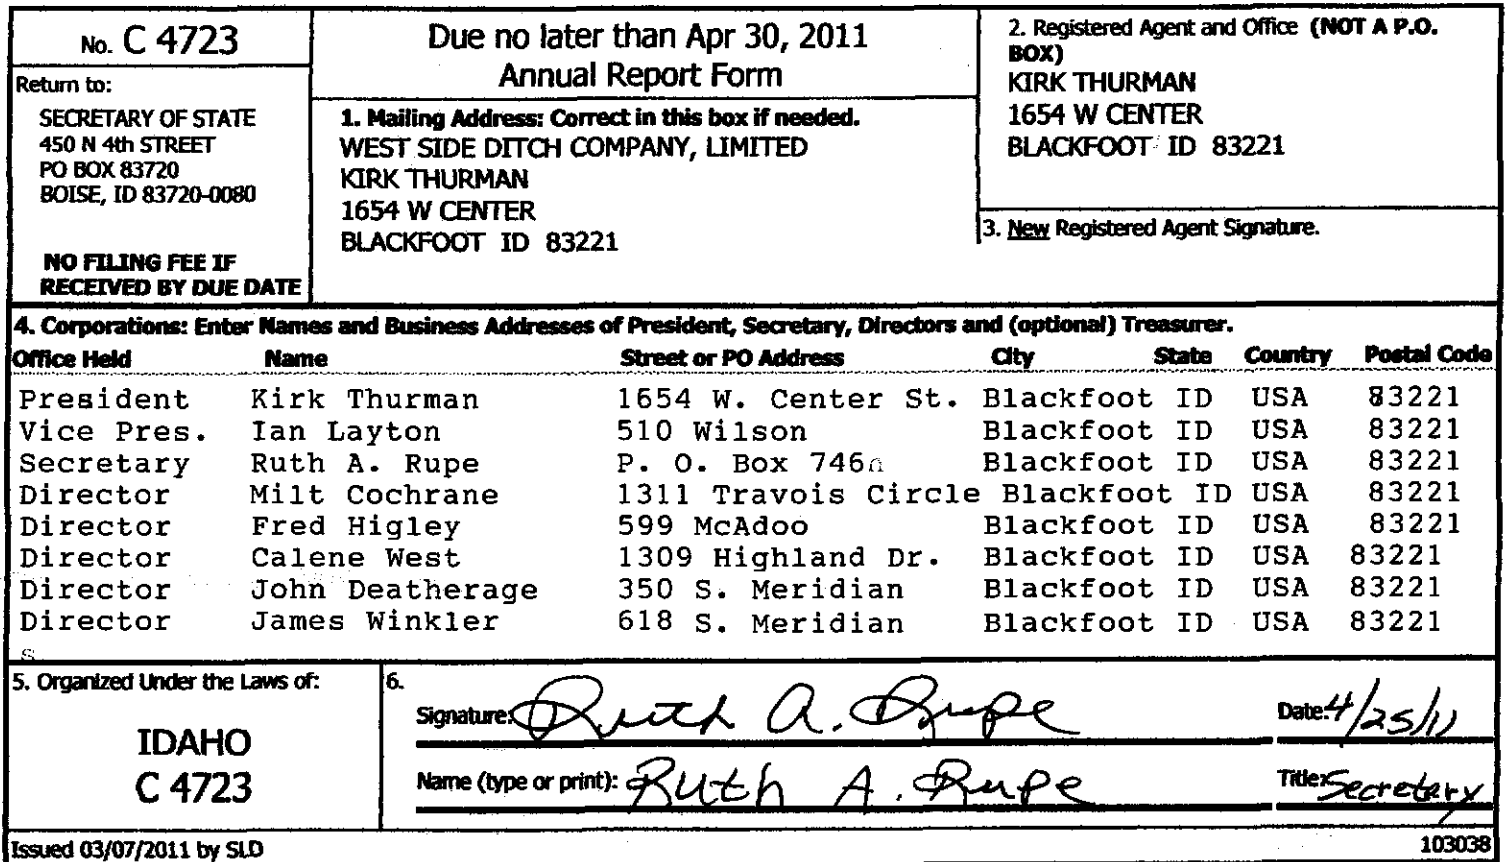 No. C 4723
Return to:
SECRETARY OF STATE
450 N 4th STREET
PO BOX 83720
BOISE, ID 83720-0080
NO FILING FEE IF
RECEIVED BY DUE DATE
Due no later than Apr 30, 2011
Annual Report Form
1. Mailing Address: Correct in this box if needed.
WEST SIDE DITCH COMPANY, LIMITED
KIRK THURMAN
1654 W CENTER
BLACKFOOT ID 83221
2. Registered Agent and Office (NOT A P.O.
BOX)
KIRK THURMAN
1654 W CENTER
BLACKFOOT ID 83221
3. New Registered Agent Signature.
4. Corporations: Enter Names and Business Addresses of President, Secretary, Directors and (optional) Treasurer.
Office Held Name Street or PO Address City State Country Postal Code
President Kirk Thurman 1654 W. Center St. Blackfoot ID USA 83221
Vice Pres. Ian Layton 510 Wilson Blackfoot ID USA 83221
Secretary Ruth A. Rupe P. O. Box 746 Blackfoot ID USA 83221
Director Milt Cochrane 1311 Travois Circle Blackfoot ID USA 83221
Director Fred Higley 599 McAdoo Blackfoot ID USA 83221
Director Calene West 1309 Highland Dr. Blackfoot ID USA 83221
Director John Deatherage 350 S. Meridian Blackfoot ID USA 83221
Director James Winkler 618 S. Meridian Blackfoot ID USA 83221
s
5. Organized Under the Laws of:
IDAHO
C 4723
6.
Signature: Ruth A. Rupe Date: 4/25/11
Name (type or print): Ruth A. Rupe Title: Secretary
Issued 03/07/2011 by SLD 103038